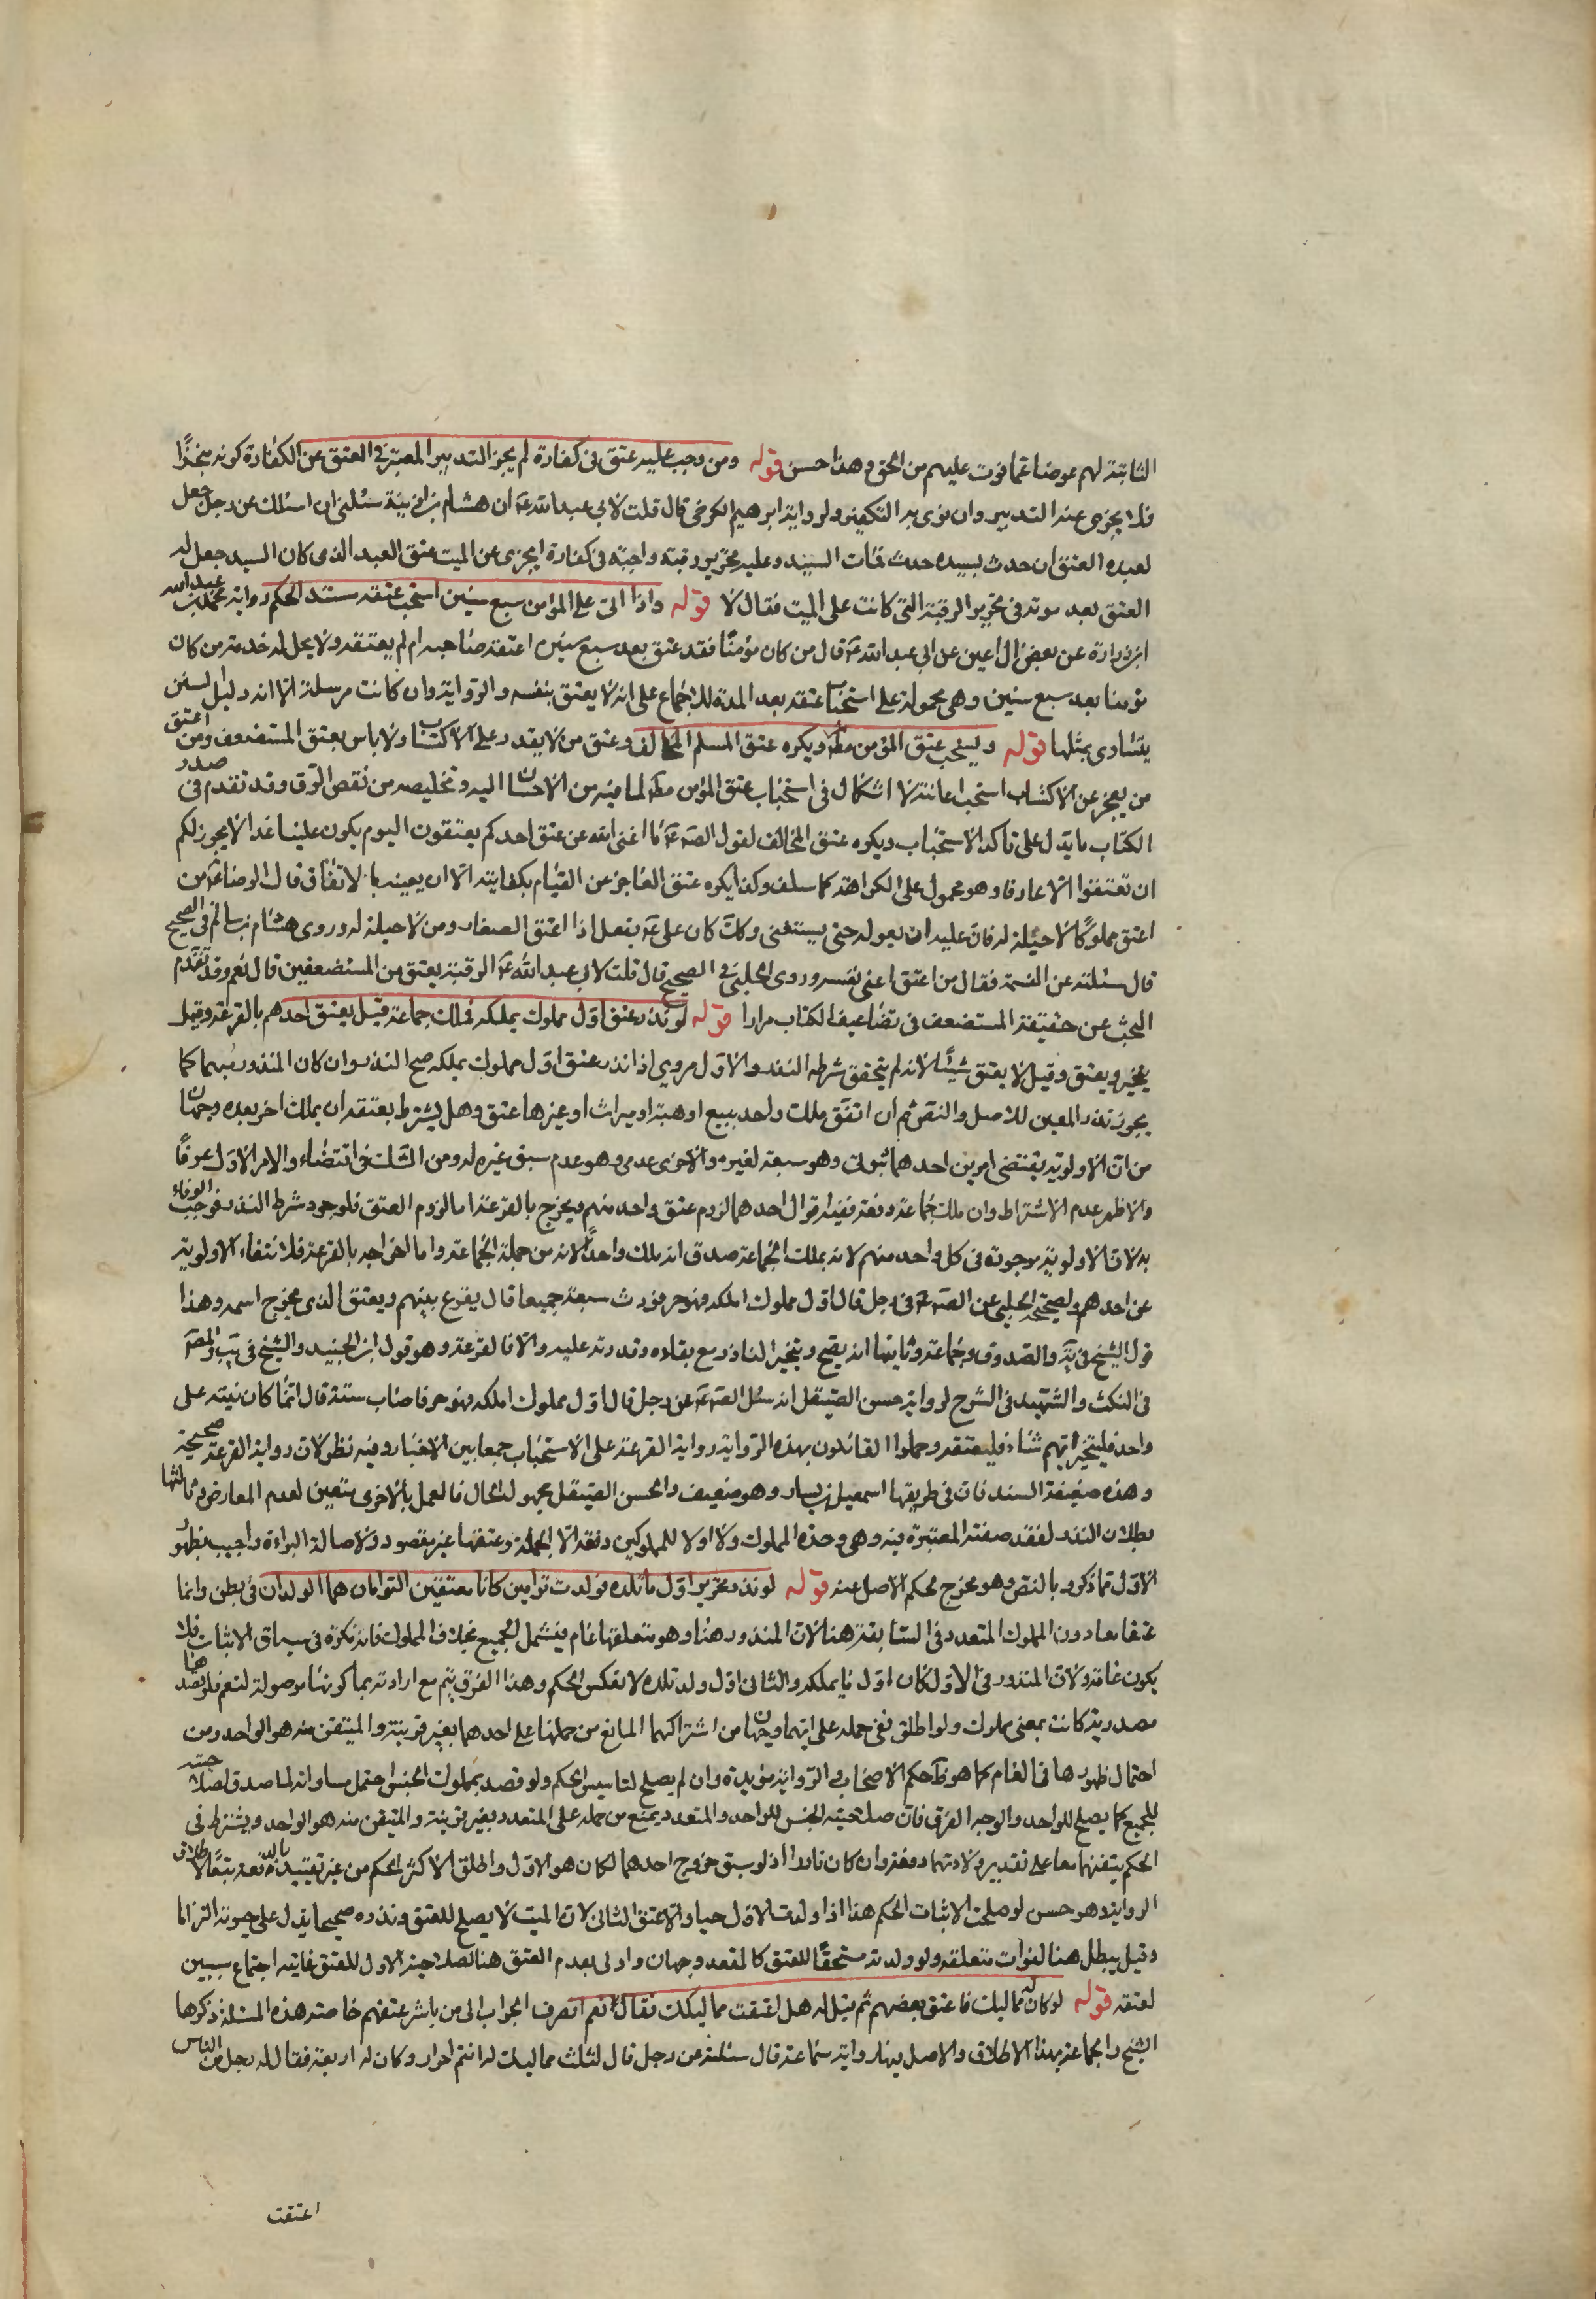 الثابتة لهم عوضا عما فوت عليهم من الحق وهذا حسن قوله ومن وجب عليه عتق في كفارة لم يجز التدبير المعتبر في العتق عن الكفارة كونه منجزا
فلا يجزي عنه التدبير وان نوى به التكفير ولرواية ابرهيم الكرخي قال قلت لابي عبد الله ع ان هشام بن اذينة سئلني ان اسئلك عن رجل جعل
لعبده العتق ان حدث بسيده حدث فمات السيد وعليه تحرير رقبة واجبة في كفارة ايجزي عن الميت عتق العبد الذي كان السيد جعل له
العتق بعد موته في تحرير الرقبة التي كانت على الميت فقال لا قوله واذا اتى على المؤمن سبع سنين استحب عتقه مستند الحكم رواية محمد بن عبد الله
ابن زرارة عن بعض ال اعين عن ابي عبد الله ع قال من كان مؤمنا فقد عتق بعد سبع سنين اعتقه صاحبه ام لم يعتقه ولا يحل له خدمة من كان
مؤمنا بعد سبع سنين وهي محمولة على استحباب عتقه بعد المدة للاجماع على انه لا يعتق بنفسه والرواية وان كانت مرسلة الا انه دليل السنن
يتسادى بمثلها قوله ويستحب عتق المؤمن مط ويكره عتق المسلم المخالف وعتق من لا يقدر على الاكتساب ولا باس بعتق المستضعف ومن اعتق
من يعجز عن الاكتساب استحب اعانته لا اشكال في استحباب عتق المؤمن مط لما فيه من الاحسان اليه وتخليصه من نقص الرق وقد تقدم في صدر
الكتاب ما يدل على تاكد الاستحباب ويكره عتق المخالف لقول الص ع ما اغنى الله عن عتق احدكم يعتقون اليوم يكون علينا غدا لا يجوز لكم
ان تعتقوا الا عارفا وهو محمول على الكراهة كما سلف وكذا يكره عتق العاجز عن القيام بكفايته الا ان يعينه بالانفاق قال الرضا ع من
اعتق مملوكا لا حيلة له فان عليه ان يعوله حتى يستغني وكان علي ع يفعل اذا اعتق الصغار ومن لا حيلة له وروى هشام بن سالم في الصحيح
قال سئلته عن النسمة فقال من اعتق اغنى نفسه وروى الحلبي في الصحيح قال قلت لابي عبد الله ع الرقبة يعتق من المستضعفين قال نعم وقد تقدم
البحث عن حقيقة المستضعف في تضاعيف الكتاب مرارا قوله لو نذر عتق اول مملوك يملكه فملك جماعة قيل يعتق احدهم بالقرعة وقيل
يتخير ويعتق وقيل لا يعتق شيئا لانه لم يتحقق شرط النذر والاول مروي اذا نذر عتق اول مملوك يملكه صح النذر وان كان المنذور مبهما كما
يجوز نذر المعين للاصل والنص ثم ان اتفق ملك واحد ببيع او هبة او ميراث او غيرها عتق وهل يشترط بعتقه ان يملك اخر بعده وجهان
من ان الاولوية يقتضي امرين احدهما ثبوتي وهو سبقه لغيره والاخرى عدمي وهو عدم سبق غيره له ومن الشك في اقتضاء والامر الاول عرفا
والاظهر عدم الاشتراط وان ملك جماعة دفعة ففيه اقوال احدهما لزوم عتق واحد منهم ويخرج بالقرعة اما لزوم العتق فلوجود شرط النذر فوجب الوفاء
به لان الاولوية موجودة في كل واحد منهم لانه بملك الجماعة صدق انه ملك واحدا لانه من جملة الجماعة واما اخراجه بالقرعة فلانتفاء الاولوية
عن احدهم ولصحيحة الحلبي عن الص ع في رجل قال اول مملوك املكه فهو حر فورث سبعة جميعا قال يقرع بينهم ويعتق الذي يخرج اسمه وهذا
قول الشيخ في ية والصدوق وجماعة وثانيها انه يصح ويتخير الناذر مع بقاءه وقدرته عليه والا فالقرعة وهو قول ابن الجنيد والشيخ في يب والمص
في النكت والشهيد في الشرح لرواية حسن الصيقل انه سئل الص ع عن رجل قال اول مملوك املكه فهو حر فاصاب ستة قال انما كان نيته على
واحد فليتخير ايهم شاء فليعتقه وحملوا القائلون بهذه الرواية رواية القرعة على الاستحباب جمعا بين الاخبار وفيه نظر لان رواية القرعة صحيحة
وهذه ضعيفة السند فان في طريقها اسمعيل بن يسار وهو ضعيف والحسن الصيقل مجهول الحال فالعمل بالاخرى متعين لعدم المعارض وثالثها
بطلان النذر لفقد صفته المعتبرة فيه وهي وحدة المملوك ولا اولا للمملوكين دفعة الا الجملة وعتقها غير مقصود ولاصالة البراءة واجيب بظهور
الاول مما ذكر وبالنص وهو مخرج لحكم الاصل عنه قوله لو نذر تحرير اول ما تلده فولدت توامين كانا معتقين التوامان هما الولدان في بطن وانما
عتقا معا دون المملوك المتعدد في السابقة هنا لان المنذور هنا وهو متعلقها عام فيشمل الجميع بخلاف المملوك فانه نكرة في سياق الاثبات فلا
يكون عامة ولان المنذور في الاول كان اول ما يملكه والثاني اول ولد تلده لانعكس الحكم وهذا الفرق يتم مع ارادته بما كونها موصولة لتعم فلو قصد بها
مصدرية كانت بمعنى مملوك ولو اطلق ففي حمله على ايهما وجهان من اشتراكهما المانع من حملها على احدهما بغير قرينة والمتيقن منه هو الواحد ومن
احتمال ظهورها في العام كما هو ظ حكم الاصحاب في الرواية مؤيدة وان لم يصلح لتاسيس الحكم ولو قصد بمملوك الجنس احتمل مساواته لما صدق اصلاحيته
للجميع كما يصلح للواحد والوجه الفرق فان صلاحيته الجنس للواحد والمتعدد يمنع من حمله على المتعدد بغير قرينة والمتيقن منه هو الواحد ويشترط في
الحكم بعتقهما معا على تقدير ولادتهما دفعة وان كان نادرا اذ لو سبق خروج احدهما لكان هو الاول واطلق الاكثر الحكم من غير تقييد بالدفعة تبعا لاطلاق
الرواية وهو حسن لو صلحت لاثبات الحكم هذا اذا ولدت الاول حيا والا عتق الثاني لان الميت لا يصلح للعتق ونذره صحيحا يدل على حيوته التزاما
وقيل يبطل هنا لفوات متعلقه ولو ولدته مستحقا للعتق كالمقعد وجهان واولى بعدم العتق هنا لصلاحية الاول للعتق غايته اجتماع سببين
لعتقه قوله لو كان له مماليك فاعتق بعضهم ثم قيل له هل اعتقت مماليكك فقال نعم انصرف الجواب الى من باشر عتقهم خاصة هذه المسئلة ذكرها
الشيخ والجماعة بهذا الاطلاق والاصل فيها رواية سماعة قال سئلته عن رجل قال لثلث مماليك له انتم احرار وكان له اربعة فقال له رجل من الناس
اعتقت